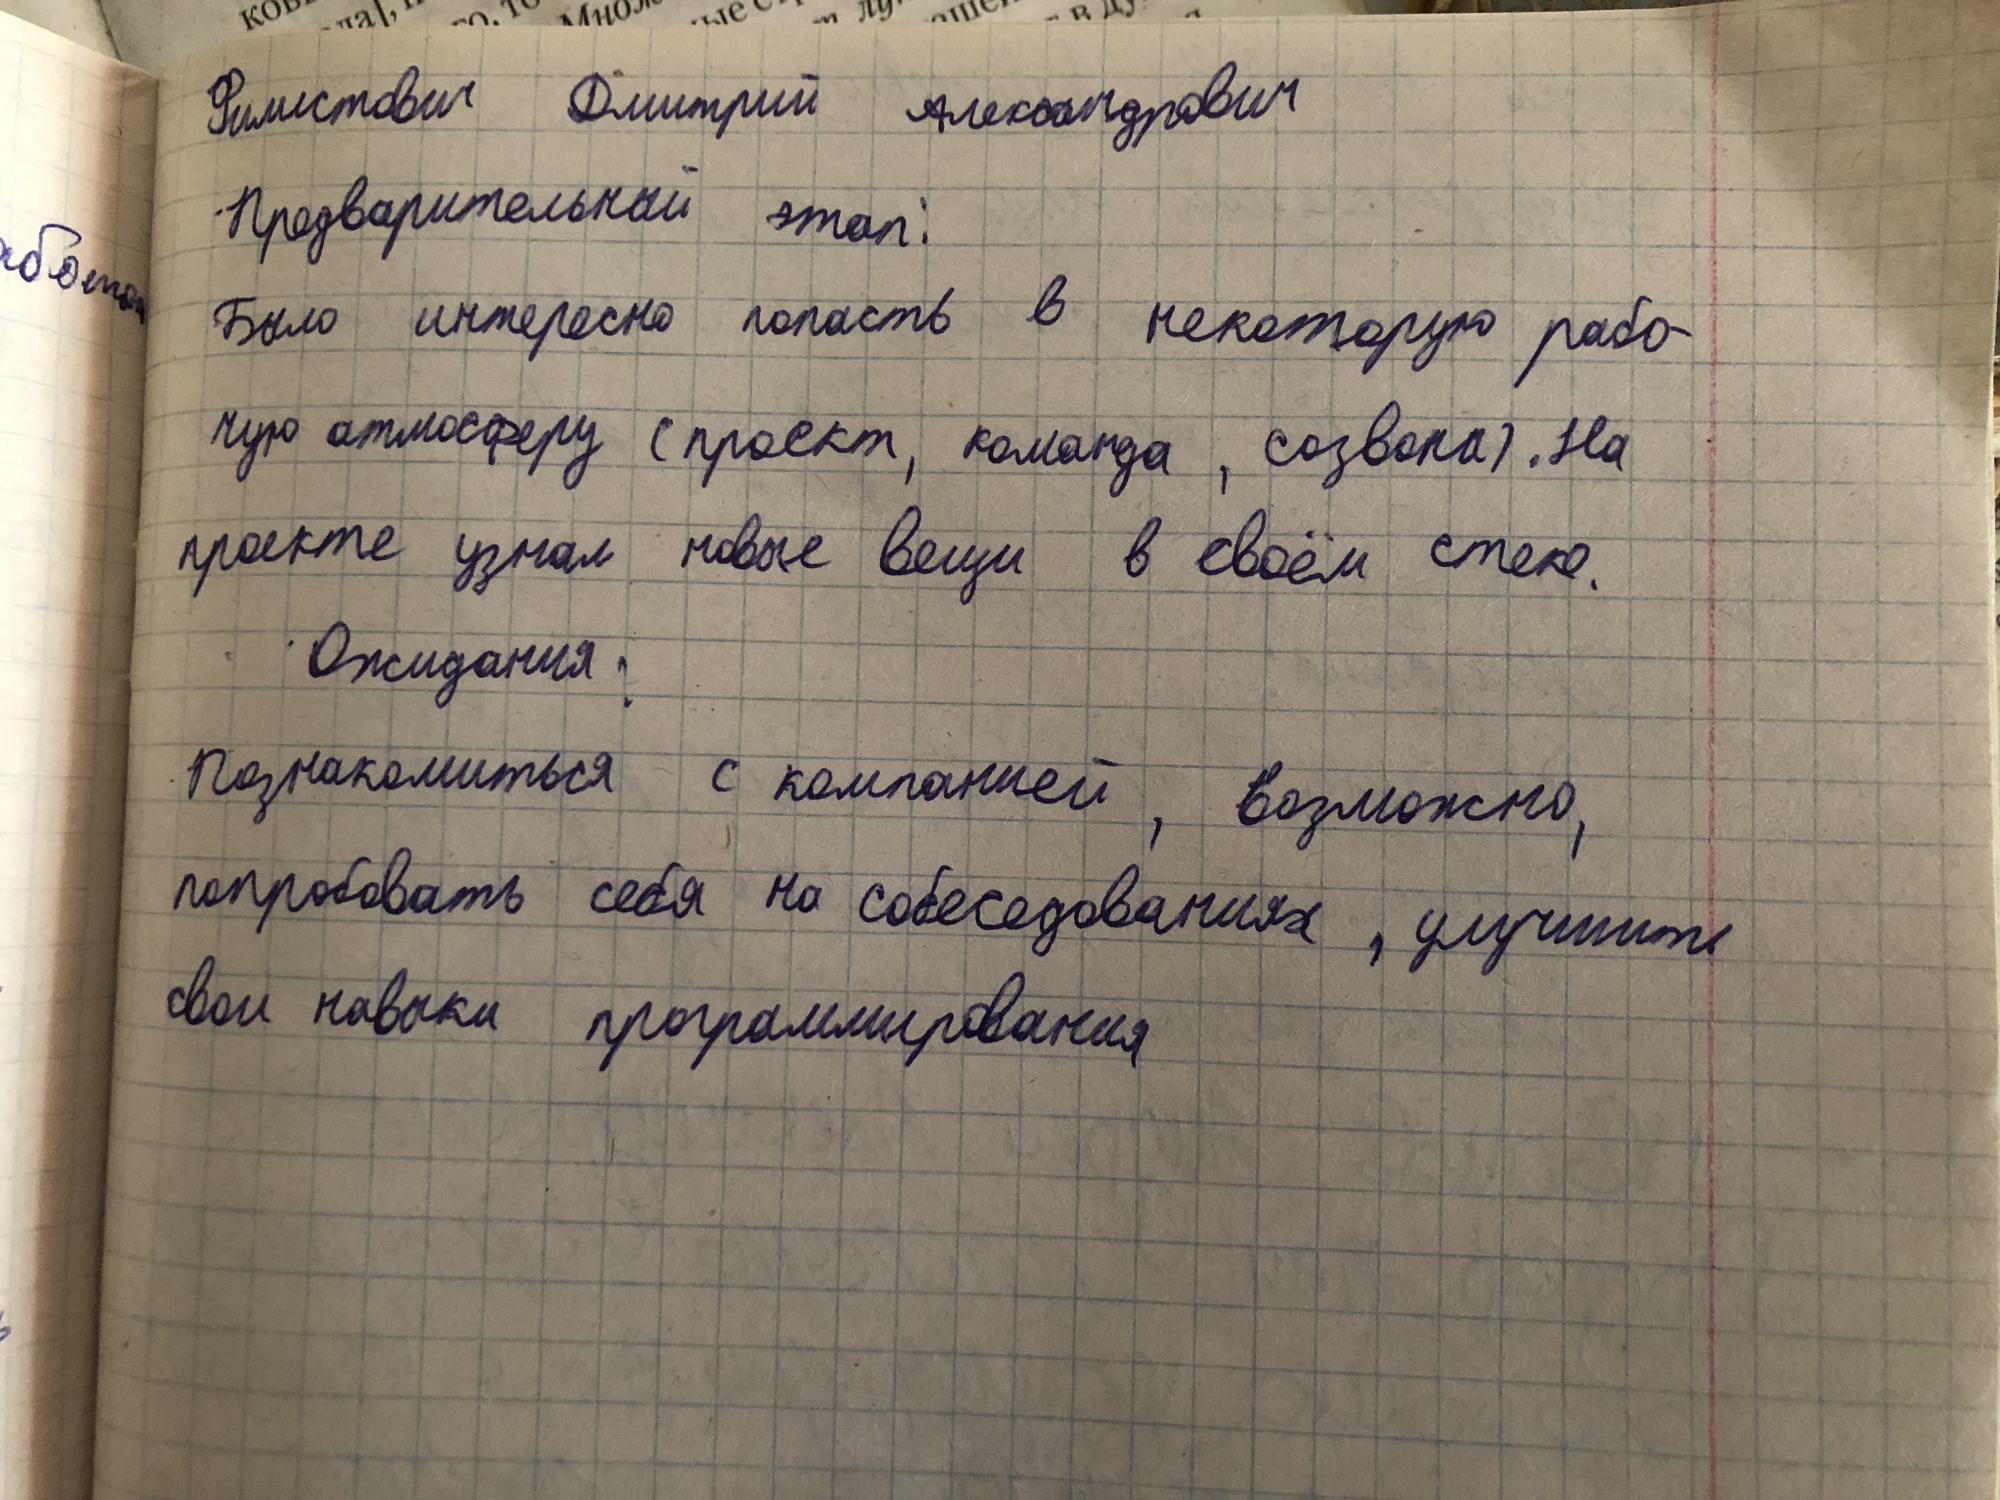 ков
Множ
Филистович Дмитрий Александрович
Предварительный этап:
Было интересно попасть в некоторую рабо-
чую атмосферу (проект, команда, созвоны). На
проекте узнал новые вещи в своём стеке.
Ожидания:
Познакомиться с компанией, возможно,
попробовать себя на собеседованиях, улучшить
свои навыки программирования